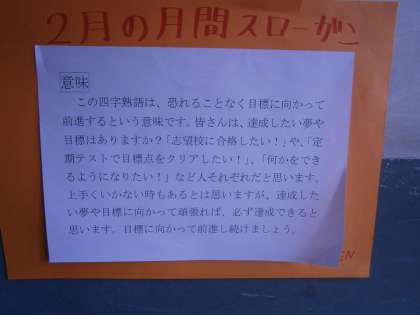 2月の月間スローガン
意味
この四字熟語は、恐れることなく目標に向かって
前進するという意味です。皆さんは、達成したい夢や
目標はありますか？「志望校に合格したい！」や、「定
期テストで目標点をクリアしたい！」、「何かをでき
るようになりたい！」など人それぞれだと思います。
上手くいかない時もあるとは思いますが、達成した
い夢や目標に向かって頑張れば、必ず達成できると
思います。目標に向かって前進し続けましょう。
EN